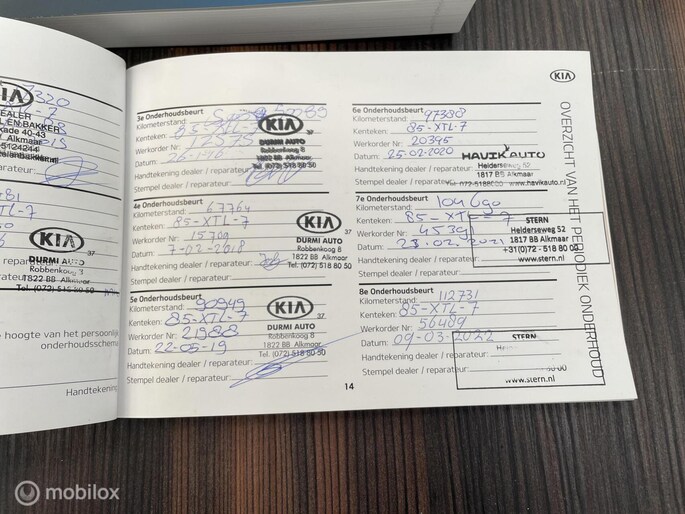 320
KIA
DEALER
EL EN BAKKER
kade 40-43
Alkmaar
5124244
KIA
DURMI AUTO
Robbenkoog 8
1822 BB Alkmaar
Tel. (072) 518 80 50
e hoogte van het persoonlij
onderhoudsschema
Handtekening
KIA
3e Onderhoudsbeurt
Kilometerstand:
Kenteken: 85-XTL-7
Werkorder Nr:
Datum:
Handtekening dealer / reparateur:
Stempel dealer / reparateur:
KIA
37
DURMI AUTO
Robbenkoog 8
1822 BB Alkmaar
Tel. (072) 518 80 50
4e Onderhoudsbeurt
Kilometerstand: 67764
Kenteken: 85-XTL-7
Werkorder Nr: 15709
Datum: 7-02-2018
Handtekening dealer / reparateur:
Stempel dealer / reparateur:
KIA
37
DURMI AUTO
Robbenkoog 8
1822 BB Alkmaar
Tel. (072) 518 80 50
5e Onderhoudsbeurt
Kilometerstand: 90949
Kenteken: 85-XTL-7
Werkorder Nr: 21988
Datum: 22-05-19
Handtekening dealer / reparateur:
Stempel dealer / reparateur:
KIA
37
DURMI AUTO
Robbenkoog 8
1822 BB Alkmaar
Tel. (072) 518 80 50
6e Onderhoudsbeurt
Kilometerstand: 97388
Kenteken: 85-XTL-7
Werkorder Nr: 20395
Datum: 25-02-2020
Handtekening dealer / reparateur:
Stempel dealer / reparateur:
HAVIK AUTO
Helderseweg 52
1817 BB Alkmaar
072-5188000 www.havikauto.nl
7e Onderhoudsbeurt
Kilometerstand: 104690
Kenteken: 85-XTL-7
Werkorder Nr: 4539
Datum: 23.02.2021
Handtekening dealer / reparateur:
Stempel dealer / reparateur:
STERN
Helderseweg 52
1817 BB Alkmaar
+31(0)72 - 518 80 00
www.stern.nl
8e Onderhoudsbeurt
Kilometerstand: 112731
Kenteken: 85-XTL-7
Werkorder Nr: 56409
Datum: 09-03-2022
Handtekening dealer / reparateur:
Stempel dealer / reparateur:
STERN
www.stern.nl
OVERZICHT VAN HET PERIODIEK ONDERHOUD
14
mobilox